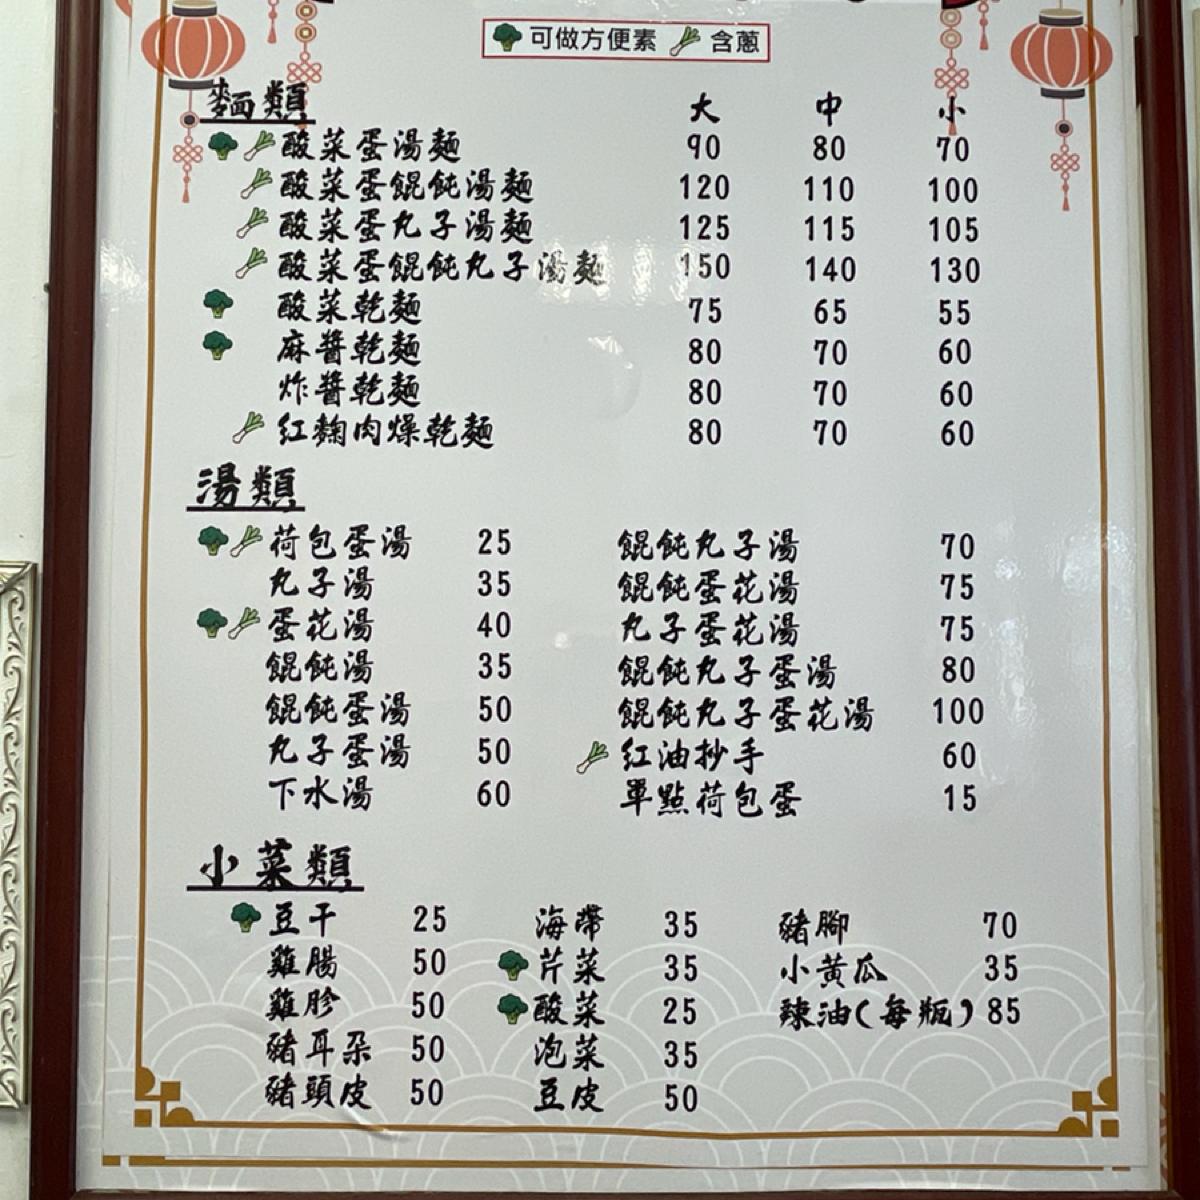 可做方便素 含蔥
麵類 大 中 小
酸菜蛋湯麵 90 80 70
酸菜蛋餛飩湯麵 120 110 100
酸菜蛋丸子湯麵 125 115 105
酸菜蛋餛飩丸子湯麵 150 140 130
酸菜乾麵 75 65 55
麻醬乾麵 80 70 60
炸醬乾麵 80 70 60
紅麴肉燥乾麵 80 70 60
湯類
荷包蛋湯 25 餛飩丸子湯 70
丸子湯 35 餛飩蛋花湯 75
蛋花湯 40 丸子蛋花湯 75
餛飩湯 35 餛飩丸子蛋湯 80
餛飩蛋湯 50 餛飩丸子蛋花湯 100
丸子蛋湯 50 紅油抄手 60
下水湯 60 單點荷包蛋 15
小菜類
豆干 25 海帶 35 豬腳 70
雞腸 50 芹菜 35 小黃瓜 35
雞胗 50 酸菜 25 辣油(每瓶) 85
豬耳朵 50 泡菜 35
豬頭皮 50 豆皮 50